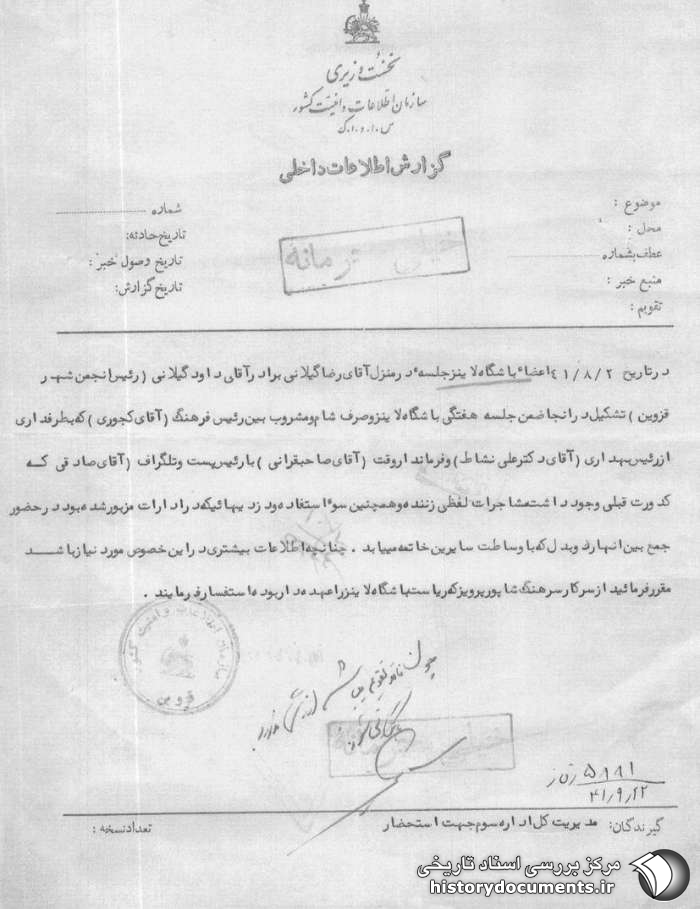 نخست وزیری
سازمان اطلاعات و امنیت کشور
س.ا.و.ا.ک
گزارش اطلاعات داخلی
موضوع :
محل :
عطف بشماره
منبع خبر :
تقویم :
شماره
تاریخ حادثه:
تاریخ وصول خبر:
تاریخ گزارش:
خیلی محرمانه
در تاریخ ٤١/٨/٢ اعضاء باشگاه لاینز جلسه در منزل آقای رضا گیلانی برادر آقای داود گیلانی (رئیس انجمن شهر
قزوین ) تشکیل در انجا ضمن جلسه هفتگی باشگاه لاینز و صرف شام و مشروب بین رئیس فرهنگ (آقای کجوری ) که بطرفداری
از رئیس بهداری (آقای دکتر علی نشاط ) و فرماندار وقت (آقای صاحبقرانی ) با رئیس پست و تلگراف (آقای صادقی که
کدورت قبلی وجود داشته مشاجرات لفظی زننده و همچنین سوء استفاده و دزدیهائیکه در ادارات مزبور شده بود در حضور
جمع بین انها رد و بدل که با وساطت سایرین خاتمه مییابد . چنانچه اطلاعات بیشتری در این خصوص مورد نیاز باشد
مقرر فرمائید از سرکار سرهنگ شاپور پرویز که ریاست باشگاه لاینز را عهده دار بوده استفسار فرمایند .
سازمان اطلاعات و امنیت کشور
قزوین
۵۸۹۱
۴۱/۹/۱۲
گیرندگان: مدیریت کل اداره سوم جهت استحضار
تعداد نسخه :
مرکز بررسی اسناد تاریخی
historydocuments.ir